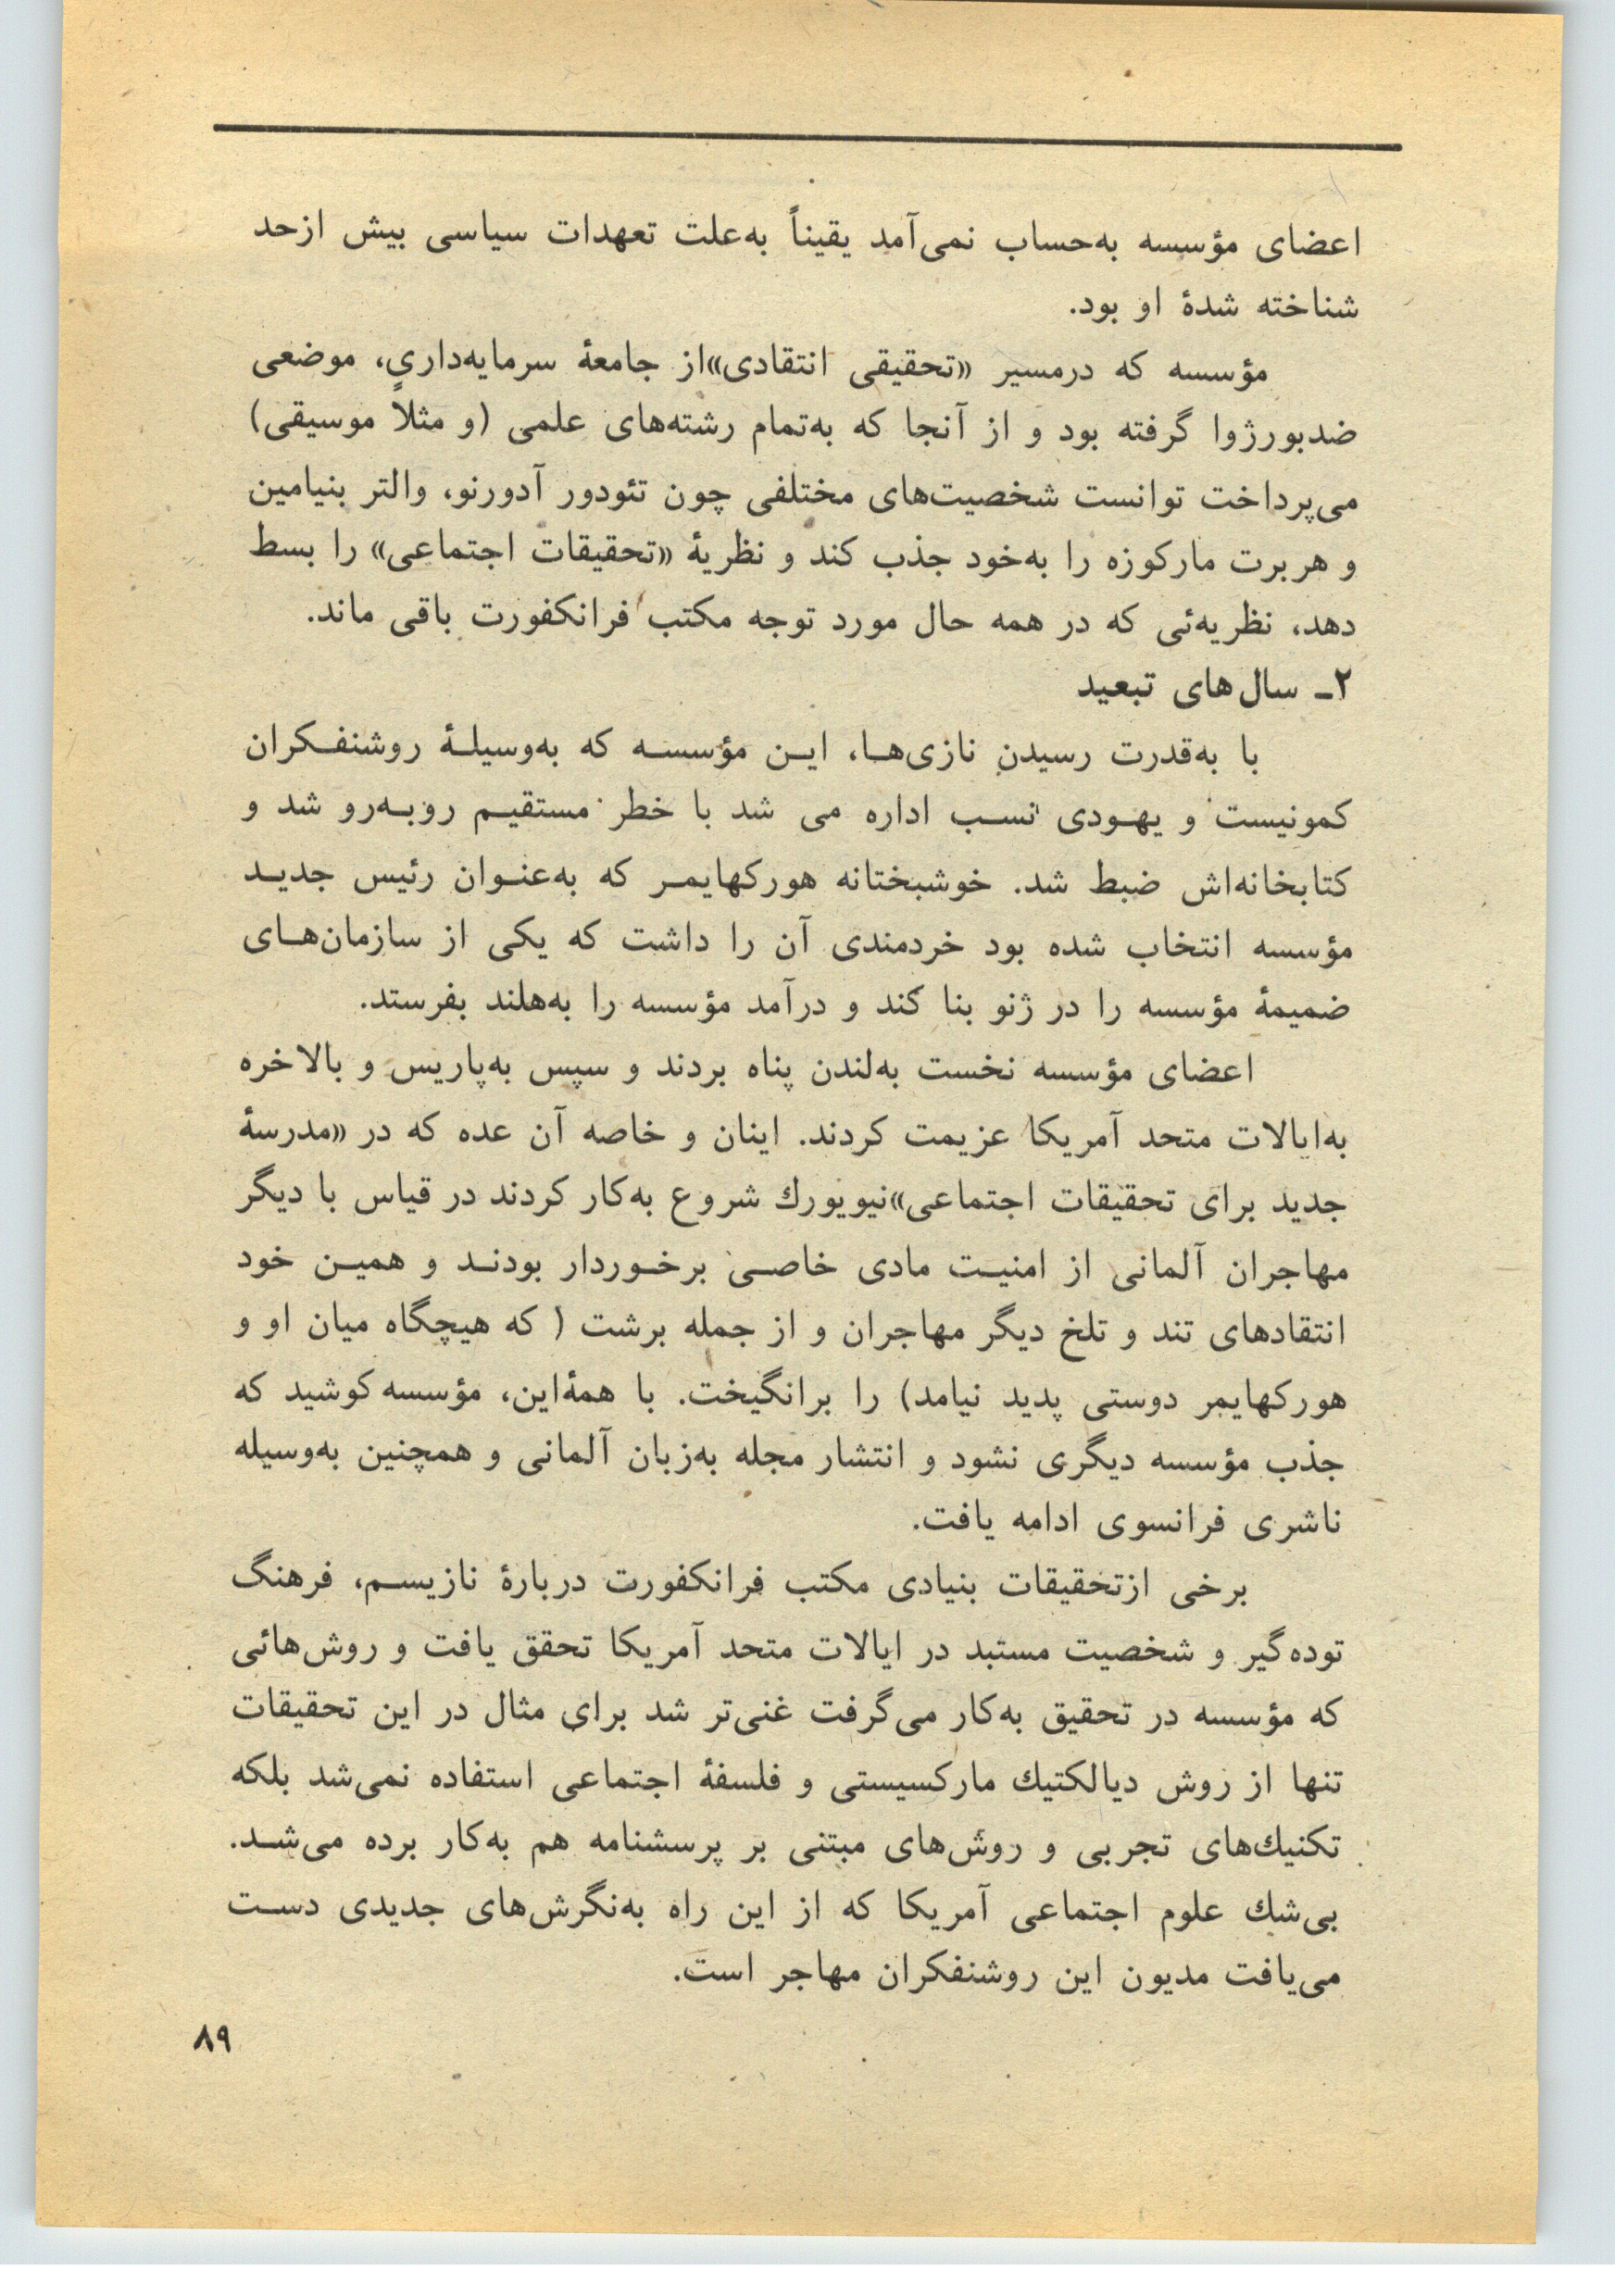 اعضای مؤسسه به‌حساب نمی‌آمد یقیناً به‌علت تعهدات سیاسی بیش ازحد
شناخته شدهٔ او بود.
مؤسسه که درمسیر «تحقیقی انتقادی»از جامعهٔ سرمایه‌داری، موضعی
ضدبورژوا گرفته بود و از آنجا که به‌تمام رشته‌های علمی (و مثلاً موسیقی)
می‌پرداخت توانست شخصیت‌های مختلفی چون تئودور آدورنو، والتر بنیامین
و هربرت مارکوزه را به‌خود جذب کند و نظریهٔ «تحقیقات اجتماعی» را بسط
دهد، نظریه‌ئی که در همه حال مورد توجه مکتب فرانکفورت باقی ماند.
۲ـ سال‌های تبعید
با به‌قدرت رسیدن نازی‌هـا، ایـن مؤسسـه که به‌وسیلـهٔ روشنفـکران
کمونیست و یهـودی نسـب اداره می شد با خطر مستقیـم روبـه‌رو شد و
کتابخانه‌اش ضبط شد. خوشبختانه هورکهایمـر که به‌عنـوان رئیس جدیـد
مؤسسه انتخاب شده بود خردمندی آن را داشت که یکی از سازمان‌هـای
ضمیمهٔ مؤسسه را در ژنو بنا کند و درآمد مؤسسه را به‌هلند بفرستد.
اعضای مؤسسه نخست به‌لندن پناه بردند و سپس به‌پاریس و بالاخره
به‌ایالات متحد آمریکا عزیمت کردند. اینان و خاصه آن عده که در «مدرسهٔ
جدید برای تحقیقات اجتماعی»نیویورك شروع به‌کار کردند در قیاس با دیگر
مهاجران آلمانی از امنیـت مادی خاصـی برخـوردار بودنـد و همیـن خود
انتقادهای تند و تلخ دیگر مهاجران و از جمله برشت ( که هیچگاه میان او و
هورکهایمر دوستی پدید نیامد) را برانگیخت. با همهٔ‌این، مؤسسه کوشید که
جذب مؤسسه دیگری نشود و انتشار مجله به‌زبان آلمانی و همچنین به‌وسیله
ناشری فرانسوی ادامه یافت.
برخی ازتحقیقات بنیادی مکتب فرانکفورت دربارهٔ نازیسـم، فرهنگ
توده‌گیر و شخصیت مستبد در ایالات متحد آمریکا تحقق یافت و روش‌هائی
که مؤسسه در تحقیق به‌کار می‌گرفت غنی‌تر شد برای مثال در این تحقیقات
تنها از روش دیالکتیك مارکسیستی و فلسفهٔ اجتماعی استفاده نمی‌شد بلکه
تکنیك‌های تجربی و روش‌های مبتنی بر پرسشنامه هم به‌کار برده می‌شـد.
بی‌شك علوم اجتماعی آمریکا که از این راه به‌نگرش‌های جدیدی دسـت
می‌یافت مدیون این روشنفکران مهاجر است.
۸۹